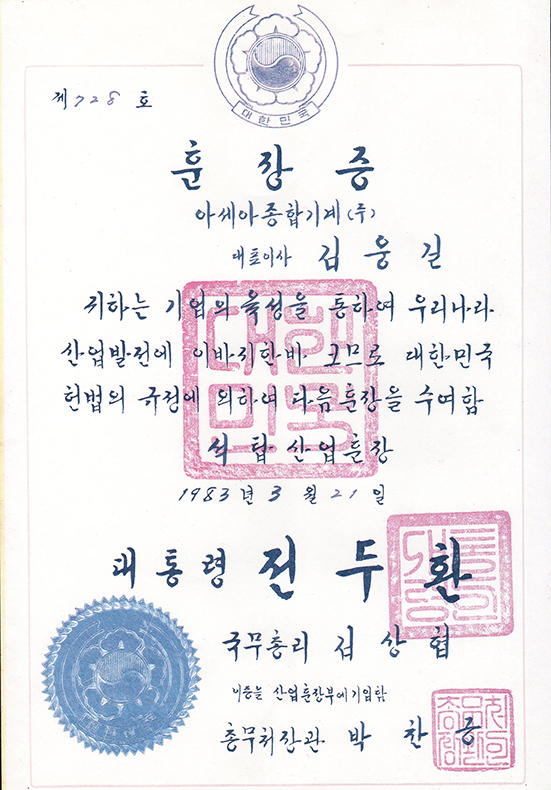 대한민국
제728호
훈장증
아세아종합기계(주)
대표이사 김웅길
귀하는 기업의 육성을 통하여 우리나라
산업발전에 이바지한바 크므로 대한민국
헌법의 규정에 의하여 다음 훈장을 수여함
석탑산업훈장
1983년 3월 21일
대통령 전두환
국무총리 김상협
이증을 산업훈장부에 기입함
총무처장관 박찬긍